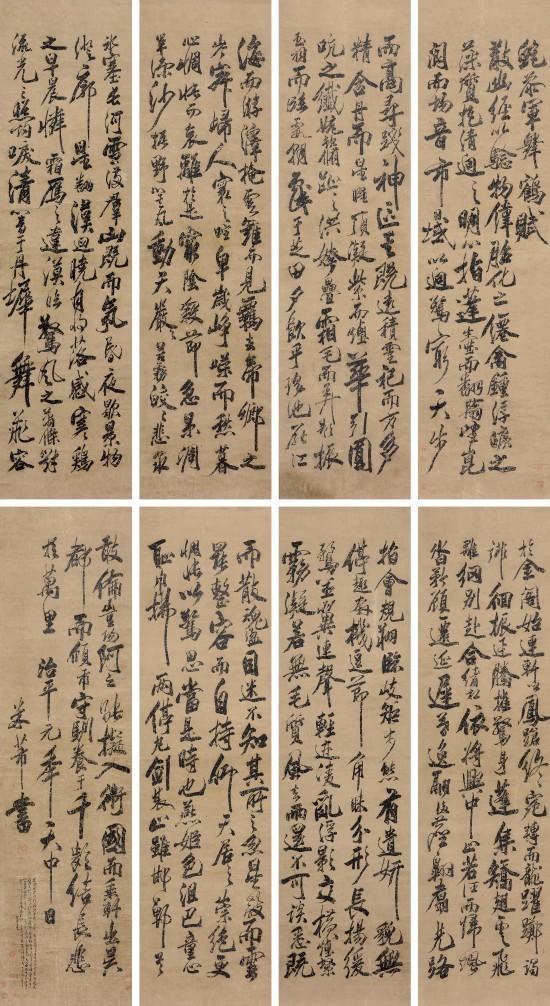 鮑參軍舞鶴賦
散幽經以驗物偉胎化之僊禽鍾浮曠之
藻質抱清迥之明心指蓬壺而翻翰望崑
閬而揚音市日域以迴騖窮天步
而高尋踐神區其既遠積靈祀而方多
精含丹而星曜頂凝紫而煙華引圓
吭之纖婉頓脩趾之洪姱疊霜毛而弄影振
玉羽而臨霞朝戲于芝田夕飲乎瑤池厭江
海而游澤掩雲羅而見羈去帝鄉之
岑寂歸人寰之喧卑歲崢嶸而愁暮
心惆悵而哀離於是窮陰殺節急景凋
年涼沙振野箕風動天嚴嚴苦霧皎皎悲泉
冰塞長河雪滿群山既而氛昏夜歇景物
澄廓星翻漢迴曉月將落感寒鷄
之早晨憐霜雁之違漠臨驚風之蕭條對
流光之照灼唳清響于丹墀舞飛容
於金閣始連軒以鳳蹌終宛轉而龍躍躑躅
徘徊振迅騰摧驚身蓬集矯翅雪飛
離綱別赴合緒相依將興中止若往而歸颯
沓矜顧遷延遲暮逸翮後塵翱翥先路
指會規翔臨岐矩步態有遺妍貌無
停趣奔機逗節角睞分形長揚緩
騖並翼連聲輕迹凌亂浮影交橫
霧凝若無毛質風去雨還不可談悉既
而散魂盪目迷不知其所之忽星離而雲
罷整容而自持仰天居之崇絕更
惆悵以驚思當是時也燕姬色沮巴童心
恥巾拂兩停丸劍雙止雖邯鄲其
敢倫豈陽阿之能擬入衛國而乘軒出吳
都而傾市守馴養于千齡結長悲
於萬里 治平元年 天中日
米芾書